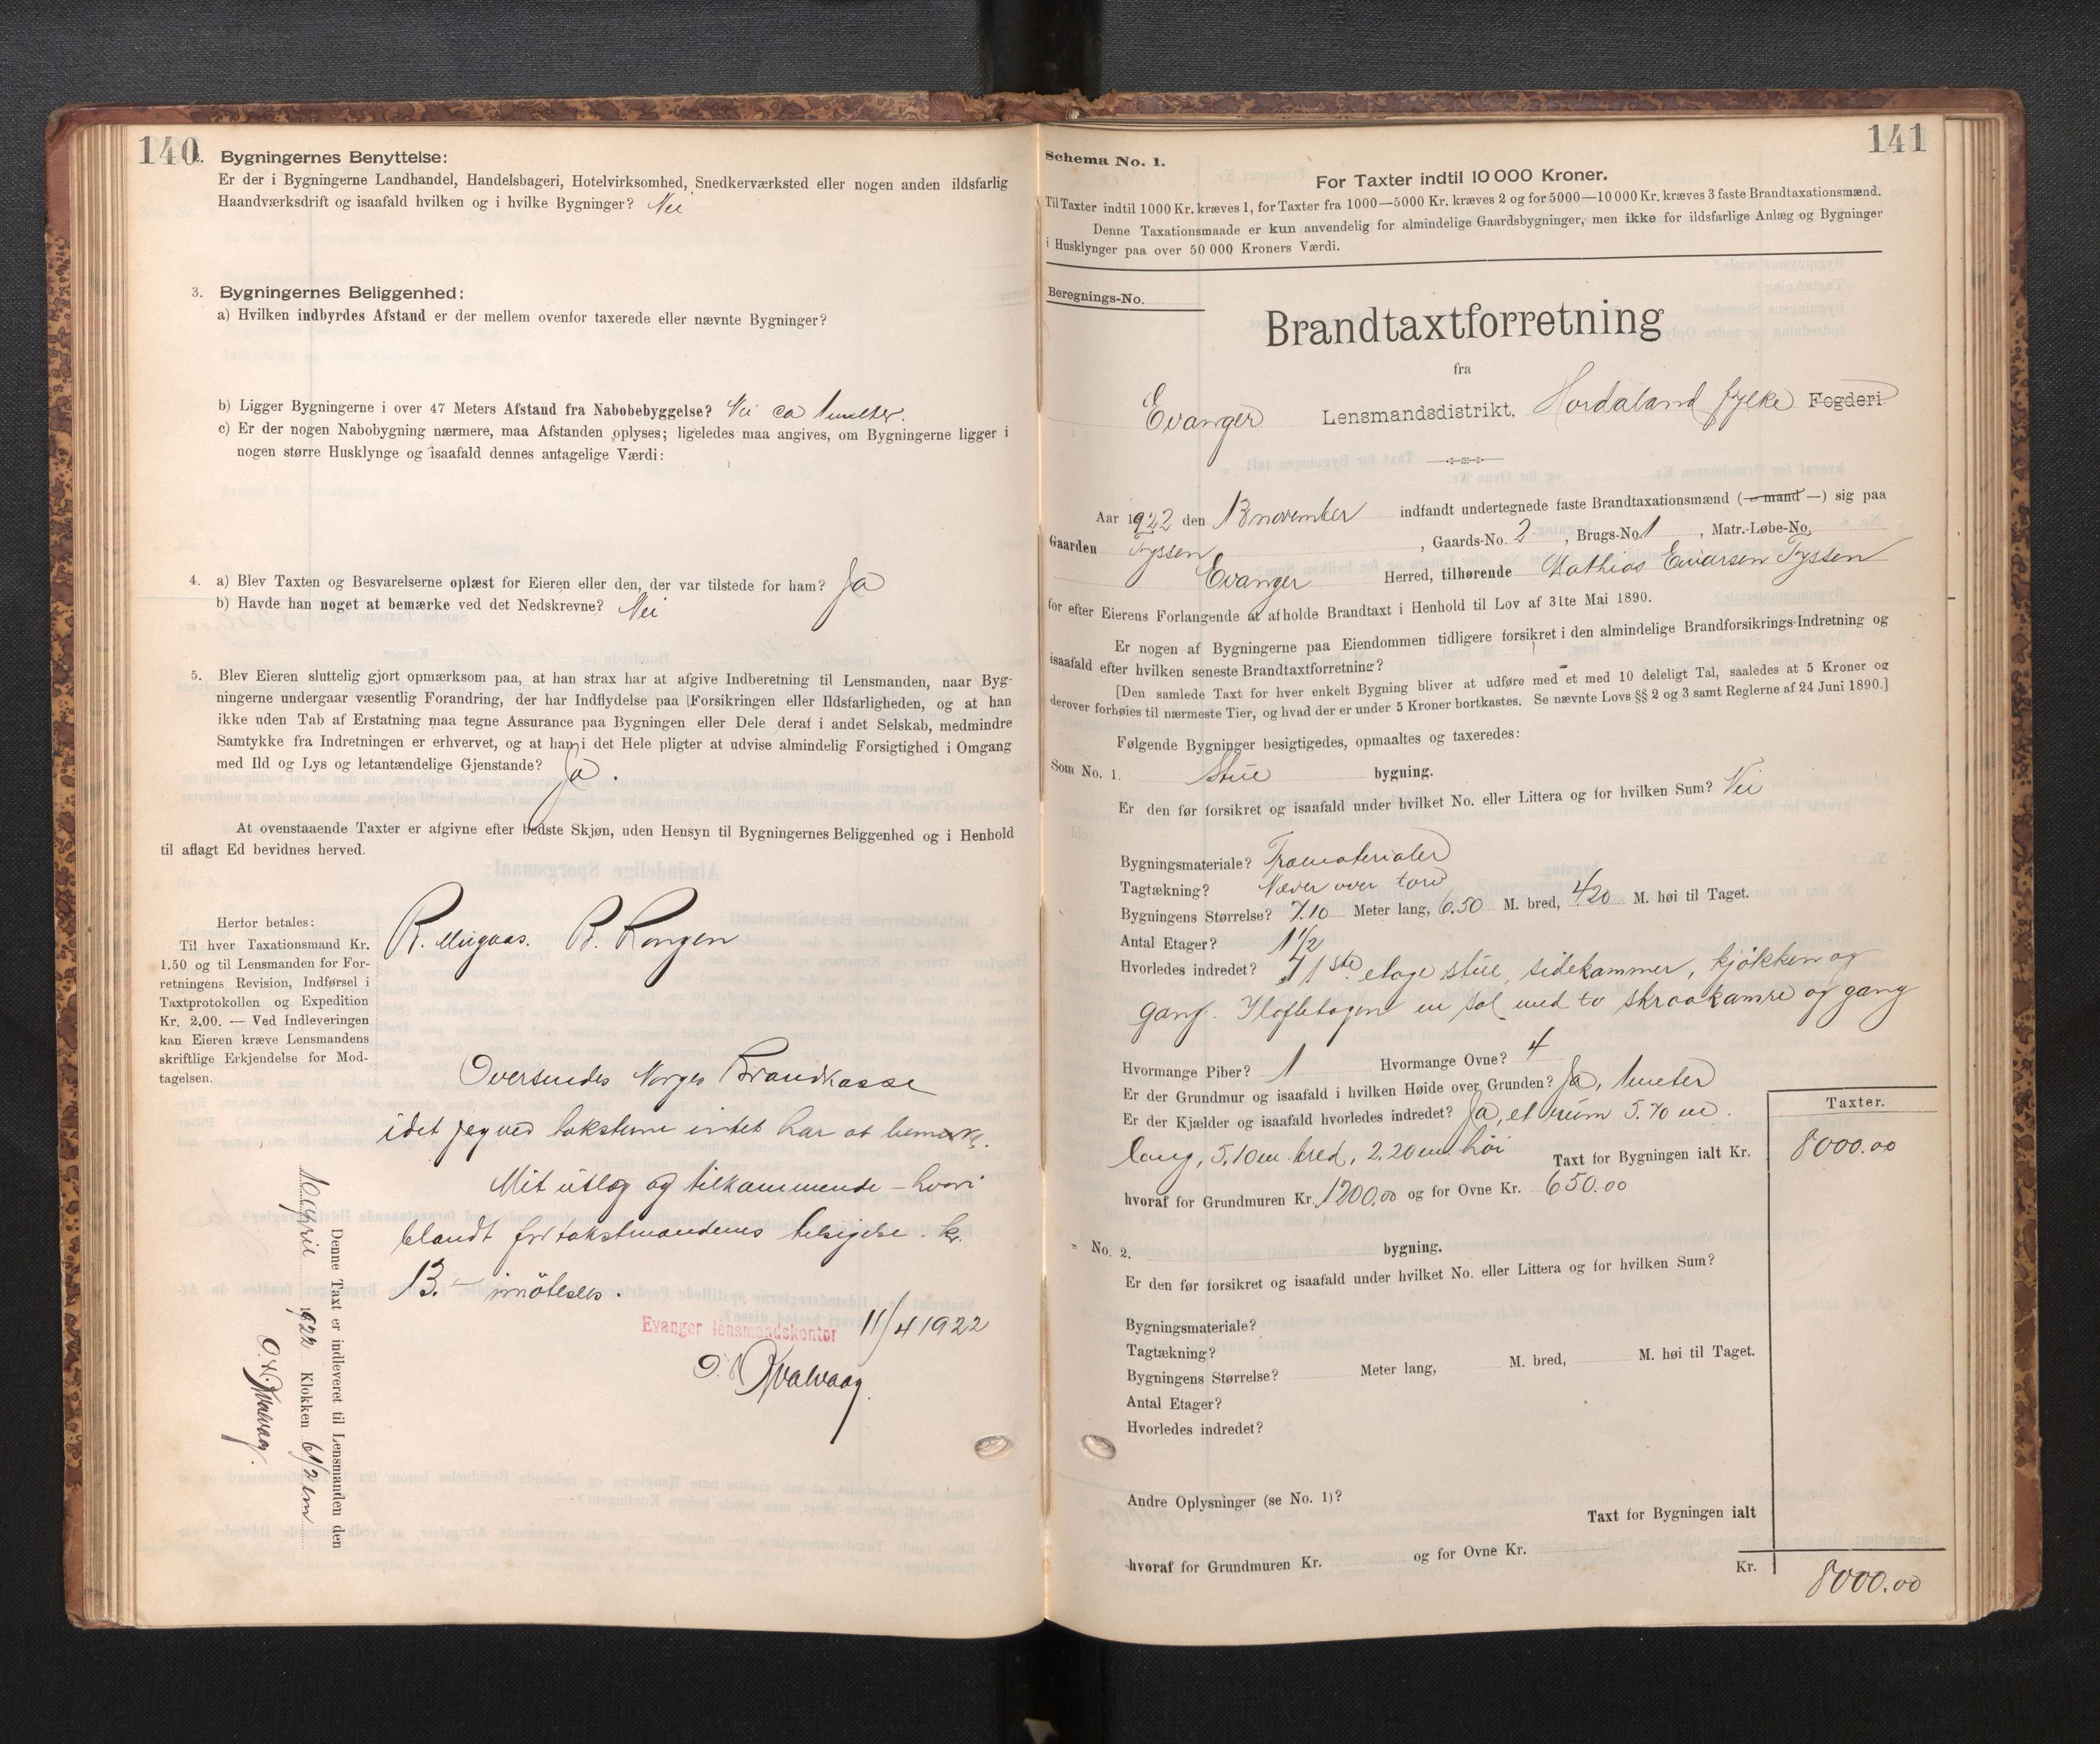 140
2. Bygningernes Benyttelse:
Er der i Bygningerne Landhandel, Handelsbageri, Hotelvirksomhed, Snedkerværksted eller nogen anden ildsfarlig
Haandværksdrift og isaafald hvilken og i hvilke Bygninger? Nei
3. Bygningernes Beliggenhed:
a) Hvilken indbyrdes Afstand er der mellem ovenfor taxerede eller nævnte Bygninger?
b) Ligger Bygningerne i over 47 Meters Afstand fra Nabobebyggelse? Nei ca 1 meter.
c) Er der nogen Nabobygning nærmere, maa Afstanden oplyses; ligeledes maa angives, om Bygningerne ligger i
nogen større Husklynge og isaafald dennes antagelige Værdi:
4. a) Blev Taxten og Besvarelserne oplæst for Eieren eller den, der var tilstede for ham? Ja
b) Havde han noget at bemærke ved det Nedskrevne? Nei
5. Blev Eieren sluttelig gjort opmærksom paa, at han strax har at afgive Indberetning til Lensmanden, naar Byg-
ningerne undergaar væsentlig Forandring, der har Indflydelse paa Forsikringen eller Ildsfarligheden, og at han
ikke uden Tab af Erstatning maa tegne Assurance paa Bygningen eller Dele deraf i andet Selskab, medmindre
Samtykke fra Indretningen er erhvervet, og at han i det Hele pligter at udvise almindelig Forsigtighed i Omgang
med Ild og Lys og letantændelige Gjenstande? Ja.
At ovenstaaende Taxter er afgivne efter bedste Skjøn, uden Hensyn til Bygningernes Beliggenhed og i Henhold
til aflagt Ed bevidnes herved.
R. Mugaas. B. Rongen
Herfor betales:
Til hver Taxationsmand Kr.
1.50 og til Lensmanden for For-
retningens Revision, Indførsel i
Taxtprotokollen og Expedition
Kr. 2.00. — Ved Indleveringen
kan Eieren kræve Lensmandens
skriftlige Erkjendelse for Mod-
tagelsen.
Oversendes Norges Brandkasse
idet jeg ved taksterne intet har at bemerke.
Mit utlæg og tilkommende – hvori
blandt for takstmændenes kr.
13.– imøtesees.
Evanger lensmandskontor 11/4 1922
O. N. Kvalvaag.
Denne Taxt er indleveret til Lensmanden den
10 april 1922 Klokken 6 1/2 em
O. N. Kvalvaag.
141
Schema No. 1.
For Taxter indtil 10 000 Kroner.
Til Taxter indtil 1000 Kr. kræves 1, for Taxter fra 1000—5000 Kr. kræves 2 og for 5000—10 000 Kr. kræves 3 faste Brandtaxationsmænd.
Denne Taxationsmaade er kun anvendelig for almindelige Gaardsbygninger, men ikke for ildsfarlige Anlæg og Bygninger
i Husklynger paa over 50 000 Kroners Værdi.
Beregnings-No.
Brandtaxtforretning
fra
Evanger Lensmandsdistrikt, Hordaland fylke Fogderi
Aar 1922 den 13 november indfandt undertegnede faste Brandtaxationsmænd (— mand —) sig paa
Gaarden Fyssen, Gaards-No. 2, Brugs-No. 1, Matr.-Løbe-No.
Evanger Herred, tilhørende Mathias Fyssen
for efter Eierens Forlangende at afholde Brandtaxt i Henhold til Lov af 31te Mai 1890.
Er nogen af Bygningerne paa Eiendommen tidligere forsikret i den almindelige Brandforsikrings-Indretning og
isaafald efter hvilken seneste Brandtaxtforretning? –
[Den samlede Taxt for hver enkelt Bygning bliver at udføre med et med 10 deleligt Tal, saaledes at 5 Kroner og
derover forhøies til nærmeste Tier, og hvad der er under 5 Kroner bortkastes. Se nævnte Lovs §§ 2 og 3 samt Reglerne af 24 Juni 1890.]
Følgende Bygninger besigtigedes, opmaaltes og taxeredes:
Som No. 1. Stue bygning.
Er den før forsikret og isaafald under hvilket No. eller Littera og for hvilken Sum? Nei
Bygningsmateriale? Træmaterialer
Tagtækning? Næver over torv
Bygningens Størrelse? 7.10 Meter lang, 6.50 M. bred, 4.20 M. høi til Taget.
Antal Etager? 1 1/2
Hvorledes indredet? I 1ste etage stue, sidekammer, kjøkken og
gang. I loftetagen en sal med to skraakamre og gang
Hvormange Piber? 1 Hvormange Ovne? 4
Er der Grundmur og isaafald i hvilken Høide over Grunden? Ja, 1 meter
Er der Kjælder og isaafald hvorledes indredet? Ja, et rum 5.70 m.
lang, 5.10 m bred, 2.20 m. høi
Taxter.
Taxt for Bygningen ialt Kr. 8000.00
hvoraf for Grundmuren Kr. 1200.00 og for Ovne Kr. 650.00
" No. 2. bygning.
Er den før forsikret og isaafald under hvilket No. eller Littera og for hvilken Sum?
Bygningsmateriale?
Tagtækning?
Bygningens Størrelse? Meter lang, M. bred, M. høi til Taget.
Antal Etager?
Hvorledes indredet?
Andre Oplysninger (se No. 1)?
Taxt for Bygningen ialt
hvoraf for Grundmuren Kr. og for Ovne Kr.
Kr. 8000.00